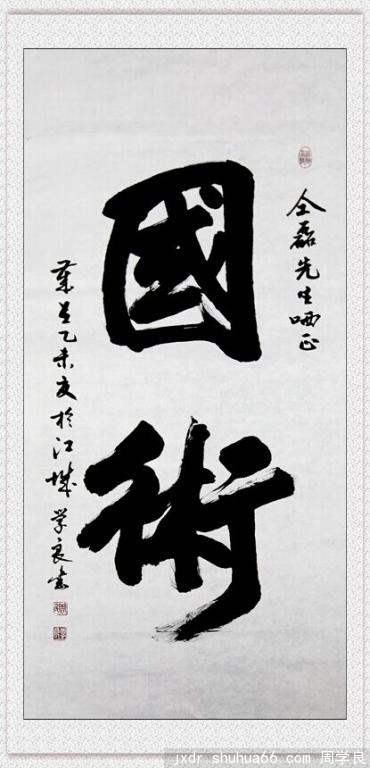 全磊先生哂正
國術
岁在乙未夏於江城
学良书
jxdr.shuhua66.com 周学良